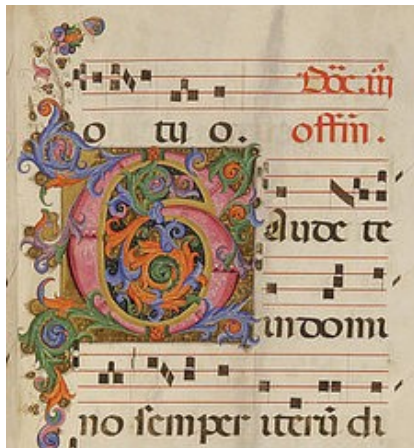 Dōc. iij
o tu o. offm̄.
Gaude te
in domi
no semper iterū di